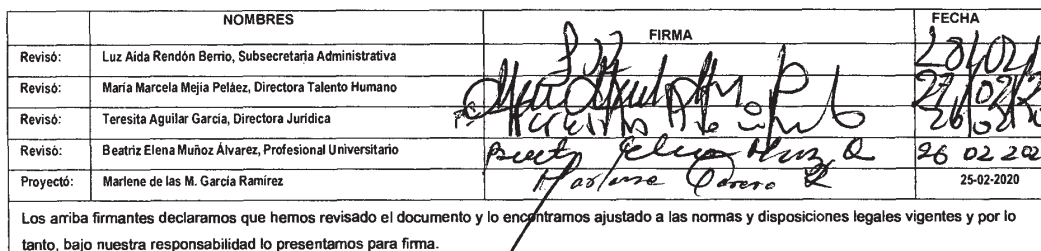 NOMBRES FIRMA FECHA
Revisó: Luz Aída Rendón Berrio, Subsecretaria Administrativa 28/02/
Revisó: María Marcela Mejía Peláez, Directora Talento Humano 27/02/2
Revisó: Teresita Aguilar García, Directora Jurídica 26/02/20
Revisó: Beatriz Elena Muñoz Álvarez, Profesional Universitario 26 02 202
Proyectó: Marlene de las M. García Ramírez 25-02-2020
Los arriba firmantes declaramos que hemos revisado el documento y lo encontramos ajustado a las normas y disposiciones legales vigentes y por lo
tanto, bajo nuestra responsabilidad lo presentamos para firma.